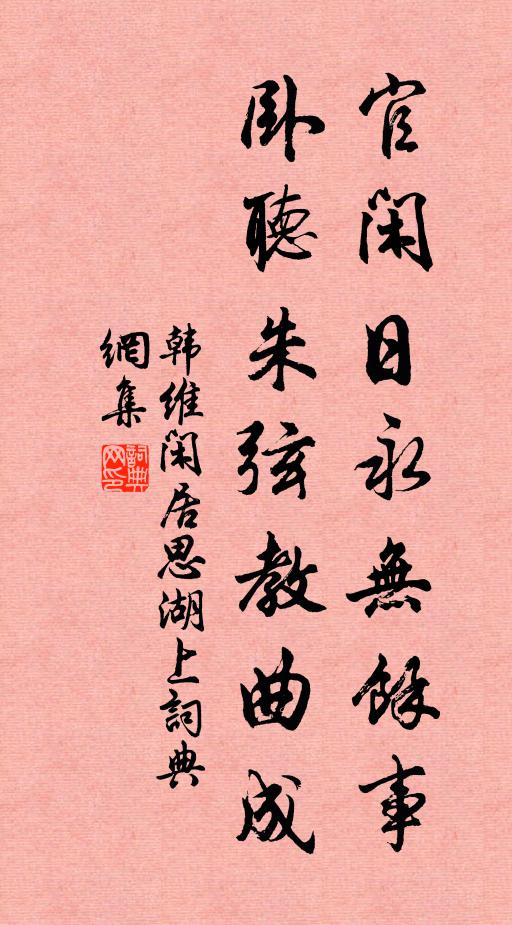 官闲日永無餘事
卧聽朱弦教曲成
韩维闲居思湖上詞典
網集
詞典
网印